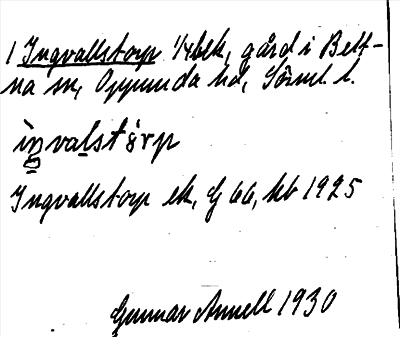 1 Ingvallstorp 1/4 bek, gård i Bett-
na sn, Oppunda hd, Söml. l.
iŋvalstȯrp
Ingvallstorp ek, G 66, kb 1925
Gunnar Annell 1930